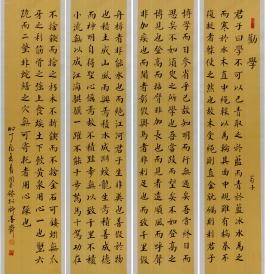 勸學
荀子
君子曰學不可以已青取之於藍而青於藍冰水為之
而寒於水木直中繩輮以為輪其曲中規雖有槁暴不
復挺者輮使之然也故木受繩則直金就礪則利君子
博學而日參省乎己則知明而行無過矣吾嘗終日而
思矣不如須臾之所學也吾嘗跂而望矣不如登高之
博見也登高而招臂非加長也而見者遠順風而呼聲
非加疾也而聞者彰假輿馬者非利足也而致千里假
舟楫者非能水也而絕江河君子生非異也善假於物
也積土成山風雨興焉積水成淵蛟龍生焉積善成德
而神明自得聖心備焉故不積跬步無以致千里不積
小流無以成江海騏驥一躍不能十步駑馬十駕功在
不捨鍥而捨之朽木不折鍥而不捨金石可鏤螾無爪
牙之利筋骨之強上食埃土下飲黃泉用心一也蟹六
跪而二螯非蛇蟺之穴無可寄託者用心躁也